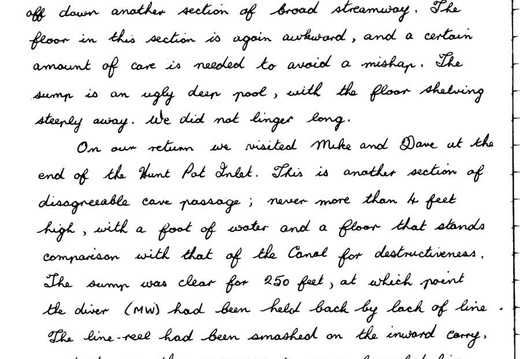 off down another section of broad streamway. The
floor in this section is again awkward, and a certain
amount of care is needed to avoid a mishap. The
sump is an ugly deep pool, with the floor shelving
steeply away. We did not linger long.
On our return we visited Mike and Dave at the
end of the Hunt Pot Inlet. This is another section of
disagreeable cave passage; never more than 4 feet
high, with a foot of water and a floor that stands
comparison with that of the Canal for destructiveness.
The sump was clear for 250 feet, at which point
the diver (MW) had been held back by lack of line.
The line-reel had been smashed on the inward carry,